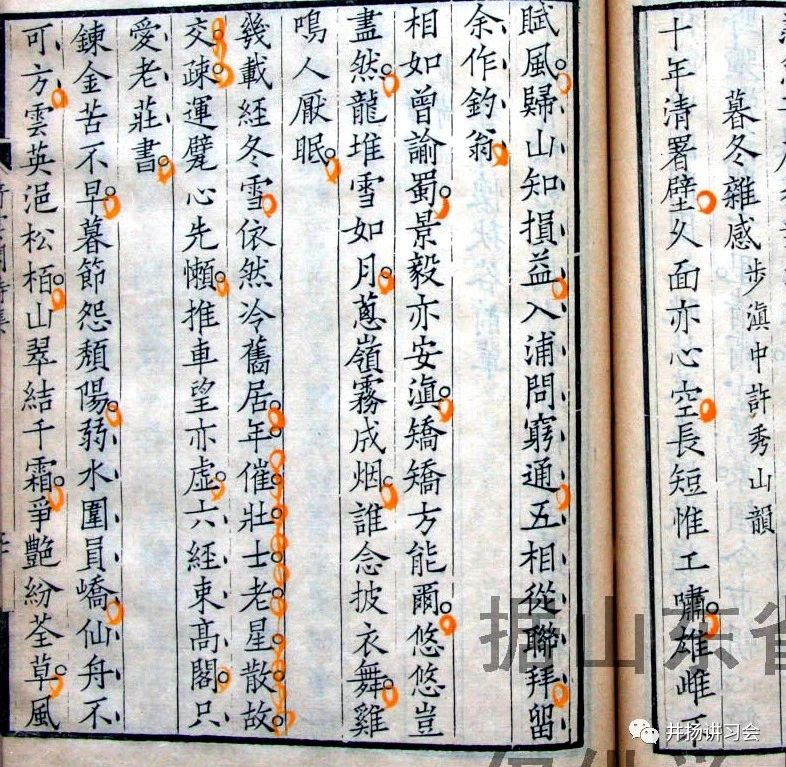 暮冬雜感 步滇中許秀山韻
十年清署壁久面亦心空長短惟工嘯雄雌
賦風歸山知損益入浦問窮通五相從聯拜留
余作釣翁
相如曾諭蜀景毅亦安滇矯矯方能爾悠悠豈
盡然龍堆雪如月蔥嶺霧成烟誰念披衣舞雞
鳴人厭眠
幾載經冬雪依然冷舊居年催壯士老星散故
交疎運甓心先懶推車望亦虛六經束高閣只
愛老莊書
鍊金苦不早暮節怨頹陽弱水圍員嶠仙舟不
可方雲英浥松栢山翠結千霜爭艷紛荃草風
据山东省
井扬讲习会